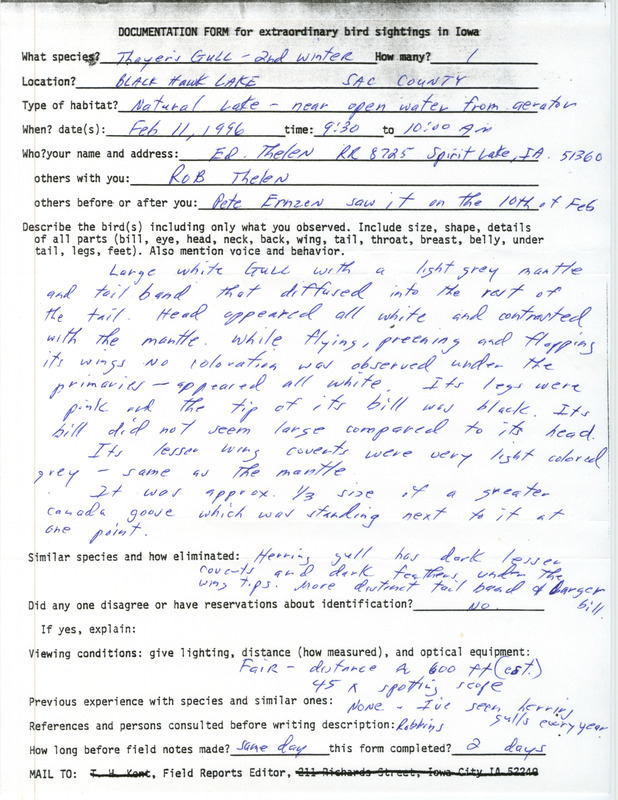 DOCUMENTATION FORM for extraordinary bird sightings in Iowa
What species? Thayer's Gull - 2nd winter How many? 1
Location? BLACK Hawk LAKE SAC COUNTY
Type of habitat? Natural Lake - near open water from aerator
When? date(s): Feb 11, 1996 time: 9:30 to 10:00 Am
Who?your name and address: ED. Thelen RR 8725 Spirit Lake, IA. 51360
others with you: ROB Thelen
others before or after you: Pete Ernzen saw it on the 10th of Feb
Describe the bird(s) including only what you observed. Include size, shape, details
of all parts (bill, eye, head, neck, back, wing, tail, throat, breast, belly, under
tail, legs, feet). Also mention voice and behavior.
Large white Gull with a light grey mantle
and tail band that diffused into the rest of
the tail. Head appeared all white and contrasted
with the mantle. While flying, preening and flapping
its wings no coloration was observed under the
primaries - appeared all white. Its legs were
pink and the tip of its bill was black. Its
bill did not seem large compared to its head.
Its lesser wing coverts were very light colored
grey - same as the mantle.
It was approx. 1/3 size of a greater
canada goose which was standing next to it at
one point.
Similar species and how eliminated: Herring gull has dark lesser
coverts and dark feathers under the
wing tips. More distinct tail band & Larger
bill.
Did any one disagree or have reservations about identification? No.
If yes, explain:
Viewing conditions: give lighting, distance (how measured), and optical equipment:
Fair - distance ≈ 600 ft (est.)
45 x spotting scope
Previous experience with species and similar ones: None - I've seen herring
gulls every year
References and persons consulted before writing description: Robbins
How long before field notes made? same day this form completed? 2 days
MAIL TO: T. H. Kent, Field Reports Editor, 211 Richards Street, Iowa City IA 52240